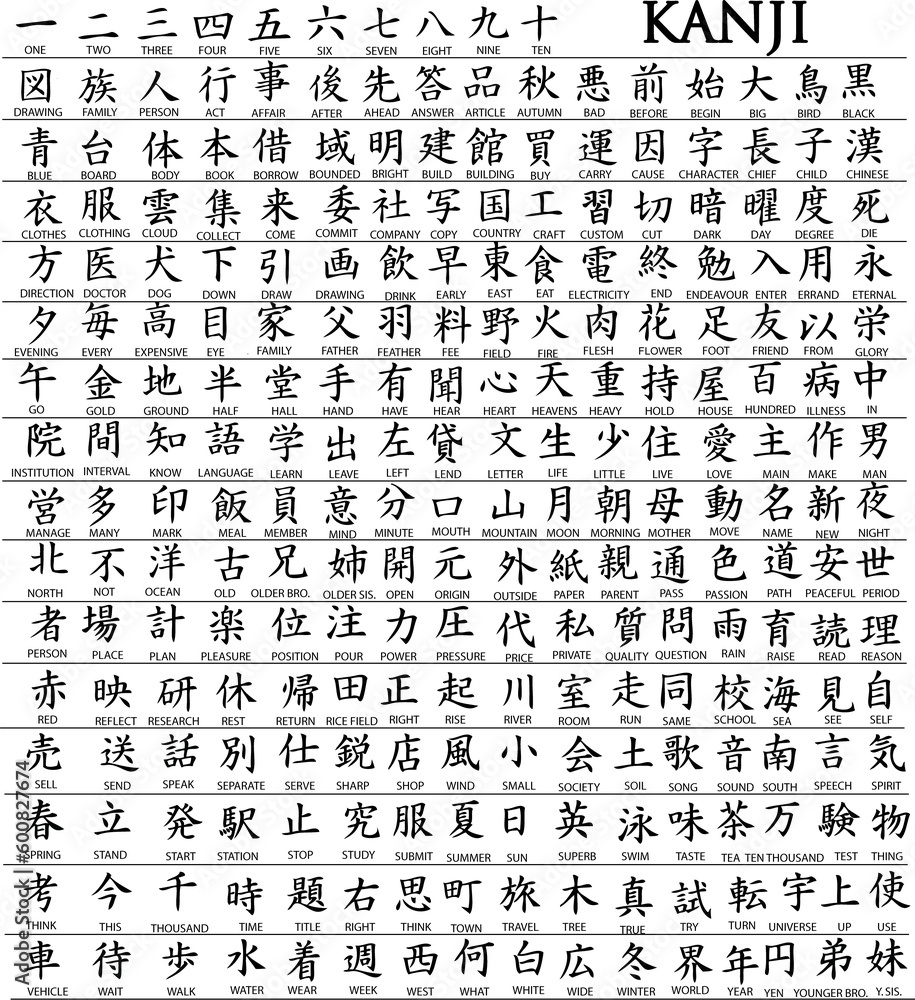 一 二 三 四 五 六 七 八 九 十 KANJI
ONE TWO THREE FOUR FIVE SIX SEVEN EIGHT NINE TEN
図 族 人 行 事 後 先 答 品 秋 悪 前 始 大 鳥 黒
DRAWING FAMILY PERSON ACT AFFAIR AFTER AHEAD ANSWER ARTICLE AUTUMN BAD BEFORE BEGIN BIG BIRD BLACK
青 台 体 本 借 域 明 建 館 買 運 因 字 長 子 漢
BLUE BOARD BODY BOOK BORROW BOUNDED BRIGHT BUILD BUILDING BUY CARRY CAUSE CHARACTER CHIEF CHILD CHINESE
衣 服 雲 集 来 委 社 写 国 工 習 切 暗 曜 度 死
CLOTHES CLOTHING CLOUD COLLECT COME COMMIT COMPANY COPY COUNTRY CRAFT CUSTOM CUT DARK DAY DEGREE DIE
方 医 犬 下 引 画 飲 早 東 食 電 終 勉 入 用 永
DIRECTION DOCTOR DOG DOWN DRAW DRAWING DRINK EARLY EAST EAT ELECTRICITY END ENDEAVOUR ENTER ERRAND ETERNAL
夕 毎 高 目 家 父 羽 料 野 火 肉 花 足 友 以 栄
EVENING EVERY EXPENSIVE EYE FAMILY FATHER FEATHER FEE FIELD FIRE FLESH FLOWER FOOT FRIEND FROM GLORY
午 金 地 半 堂 手 有 聞 心 天 重 持 屋 百 病 中
GO GOLD GROUND HALF HALL HAND HAVE HEAR HEART HEAVENS HEAVY HOLD HOUSE HUNDRED ILLNESS IN
院 間 知 語 学 出 左 貸 文 生 少 住 愛 主 作 男
INSTITUTION INTERVAL KNOW LANGUAGE LEARN LEAVE LEFT LEND LETTER LIFE LITTLE LIVE LOVE MAIN MAKE MAN
営 多 印 飯 員 意 分 口 山 月 朝 母 動 名 新 夜
MANAGE MANY MARK MEAL MEMBER MIND MINUTE MOUTH MOUNTAIN MOON MORNING MOTHER MOVE NAME NEW NIGHT
北 不 洋 古 兄 姉 開 元 外 紙 親 通 色 道 安 世
NORTH NOT OCEAN OLD OLDER BRO. OLDER SIS. OPEN ORIGIN OUTSIDE PAPER PARENT PASS PASSION PATH PEACEFUL PERIOD
者 場 計 楽 位 注 力 圧 代 私 質 問 雨 育 読 理
PERSON PLACE PLAN PLEASURE POSITION POUR POWER PRESSURE PRICE PRIVATE QUALITY QUESTION RAIN RAISE READ REASON
赤 映 研 休 帰 田 正 起 川 室 走 同 校 海 見 自
RED REFLECT RESEARCH REST RETURN RICE FIELD RIGHT RISE RIVER ROOM RUN SAME SCHOOL SEA SEE SELF
売 送 話 別 仕 鋭 店 風 小 会 土 歌 音 南 言 気
SELL SEND SPEAK SEPARATE SERVE SHARP SHOP WIND SMALL SOCIETY SOIL SONG SOUND SOUTH SPEECH SPIRIT
春 立 発 駅 止 究 服 夏 日 英 泳 味 茶 万 験 物
SPRING STAND START STATION STOP STUDY SUBMIT SUMMER SUN SUPERB SWIM TASTE TEA TEN THOUSAND TEST THING
考 今 千 時 題 右 思 町 旅 木 真 試 転 宇 上 使
THINK THIS THOUSAND TIME TITLE RIGHT THINK TOWN TRAVEL TREE TRUE TRY TURN UNIVERSE UP USE
車 待 歩 水 着 週 西 何 白 広 冬 界 年 円 弟 妹
VEHICLE WAIT WALK WATER WEAR WEEK WEST WHAT WHITE WIDE WINTER WORLD YEAR YEN YOUNGER BRO. Y. SIS.
Adobe Stock | #600827674